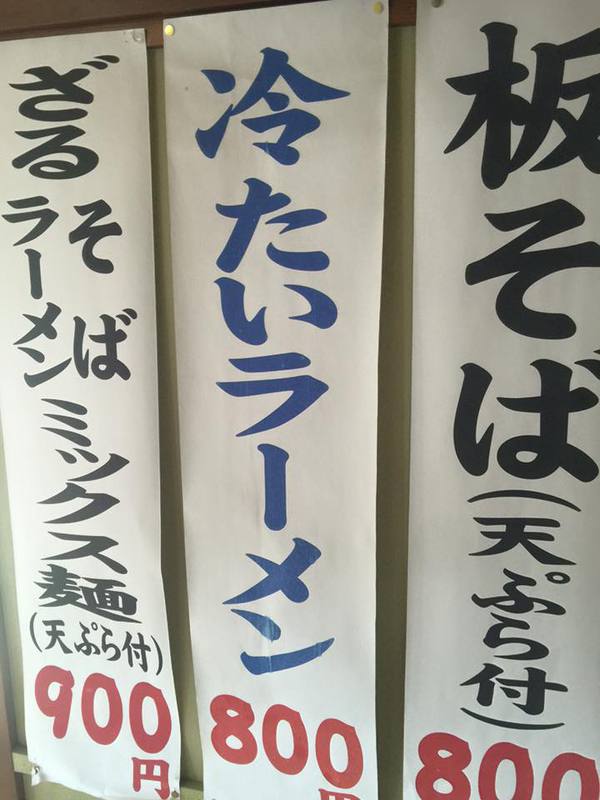 板そば
(天ぷら付)
800
冷たいラーメン
800
円
ざる
そば
ラーメン
ミックス麺
(天ぷら付)
900
円